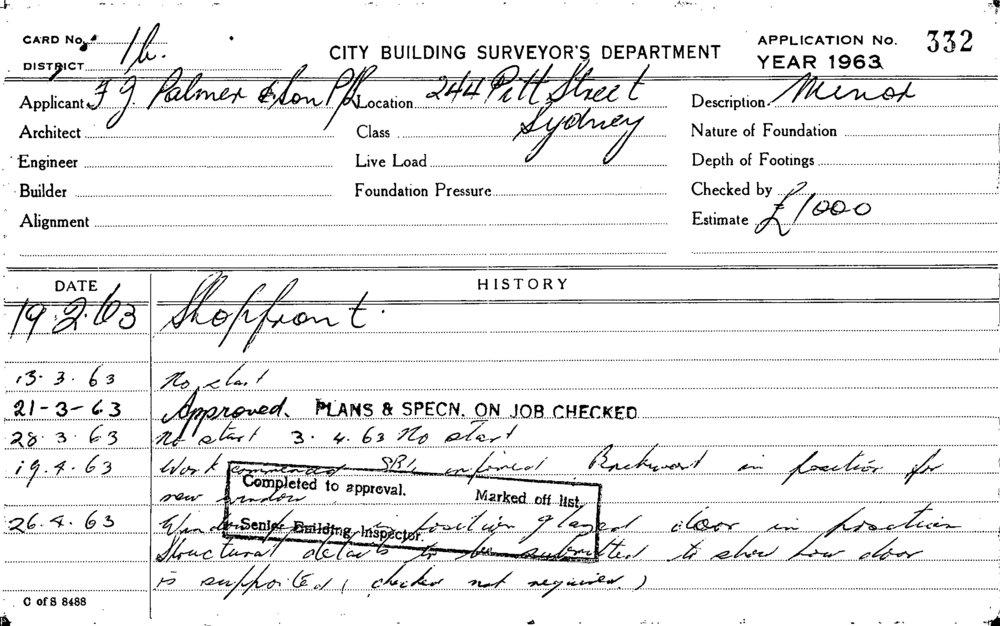 CARD No. 1b.
DISTRICT
CITY BUILDING SURVEYOR'S DEPARTMENT
APPLICATION No. 332
YEAR 1963
Applicant F J. Palmer & Son P/L Location 244 Pitt Street Description Minor
Sydney
Architect Class Nature of Foundation
Engineer Live Load Depth of Footings
Builder Foundation Pressure Checked by
Alignment Estimate £1000
DATE HISTORY
19.2.63 Shopfront.
13.3.63 No start
21-3-63 Approved. PLANS & SPECN. ON JOB CHECKED
28.3.63 No start 3.4.63 No start
19.4.63 Work commenced informed Brickwork in position for
new window
Completed to approval. Marked off list.
Senior Building Inspector.
26.4.63 Window in position glazed door in position
Structural details to be submitted to show how door
is supported (checked not required.)
C of S 8488